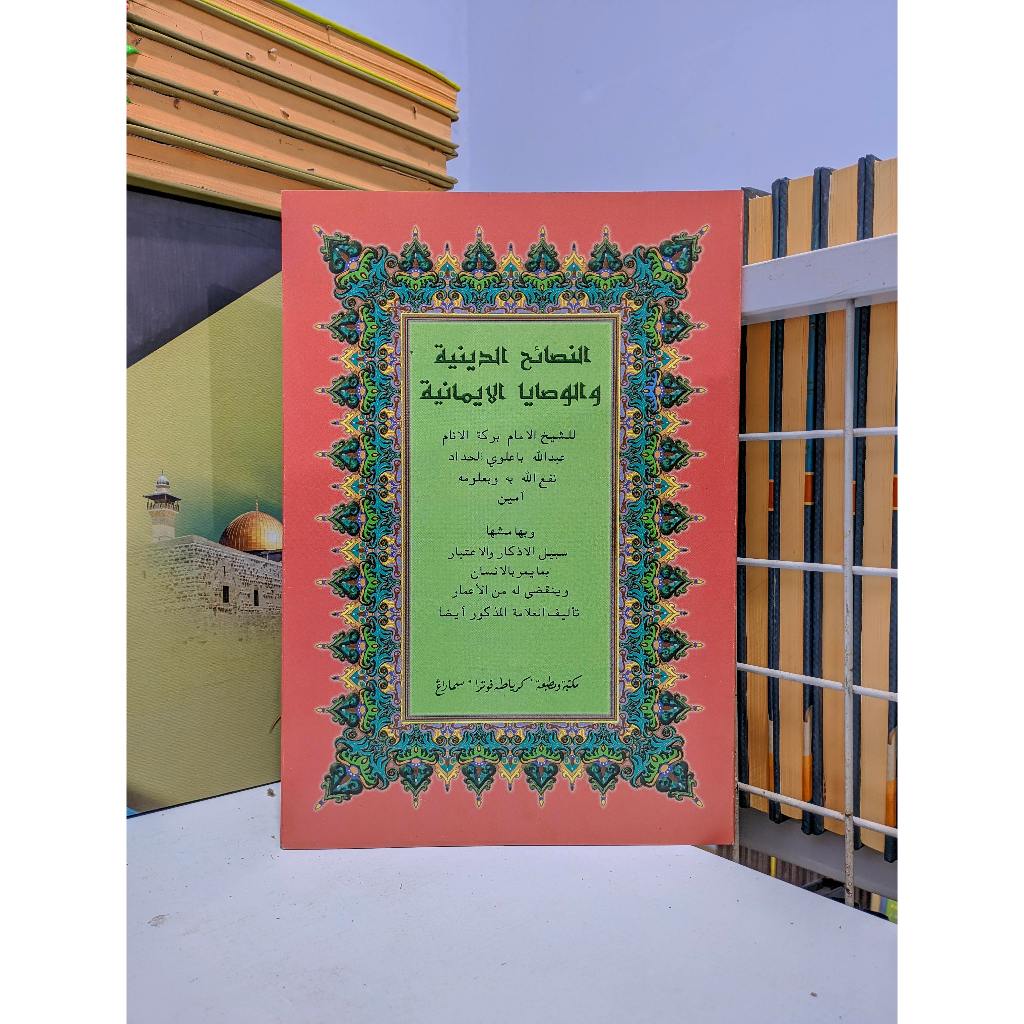 النصائح الدينية
والوصايا الايمانية
للشيخ الامام بركة الانام
عبدالله باعلوي الحداد
نفع الله به وبعلومه
آمين
وبهامشها
سبيل الاذكار والاعتبار
بمايمر بالانسان
وينقضي له من الأعمار
تأليف العلامة المذكور أيضا
مكتبة ومطبعة " كرياطه فوترا " سماراغ